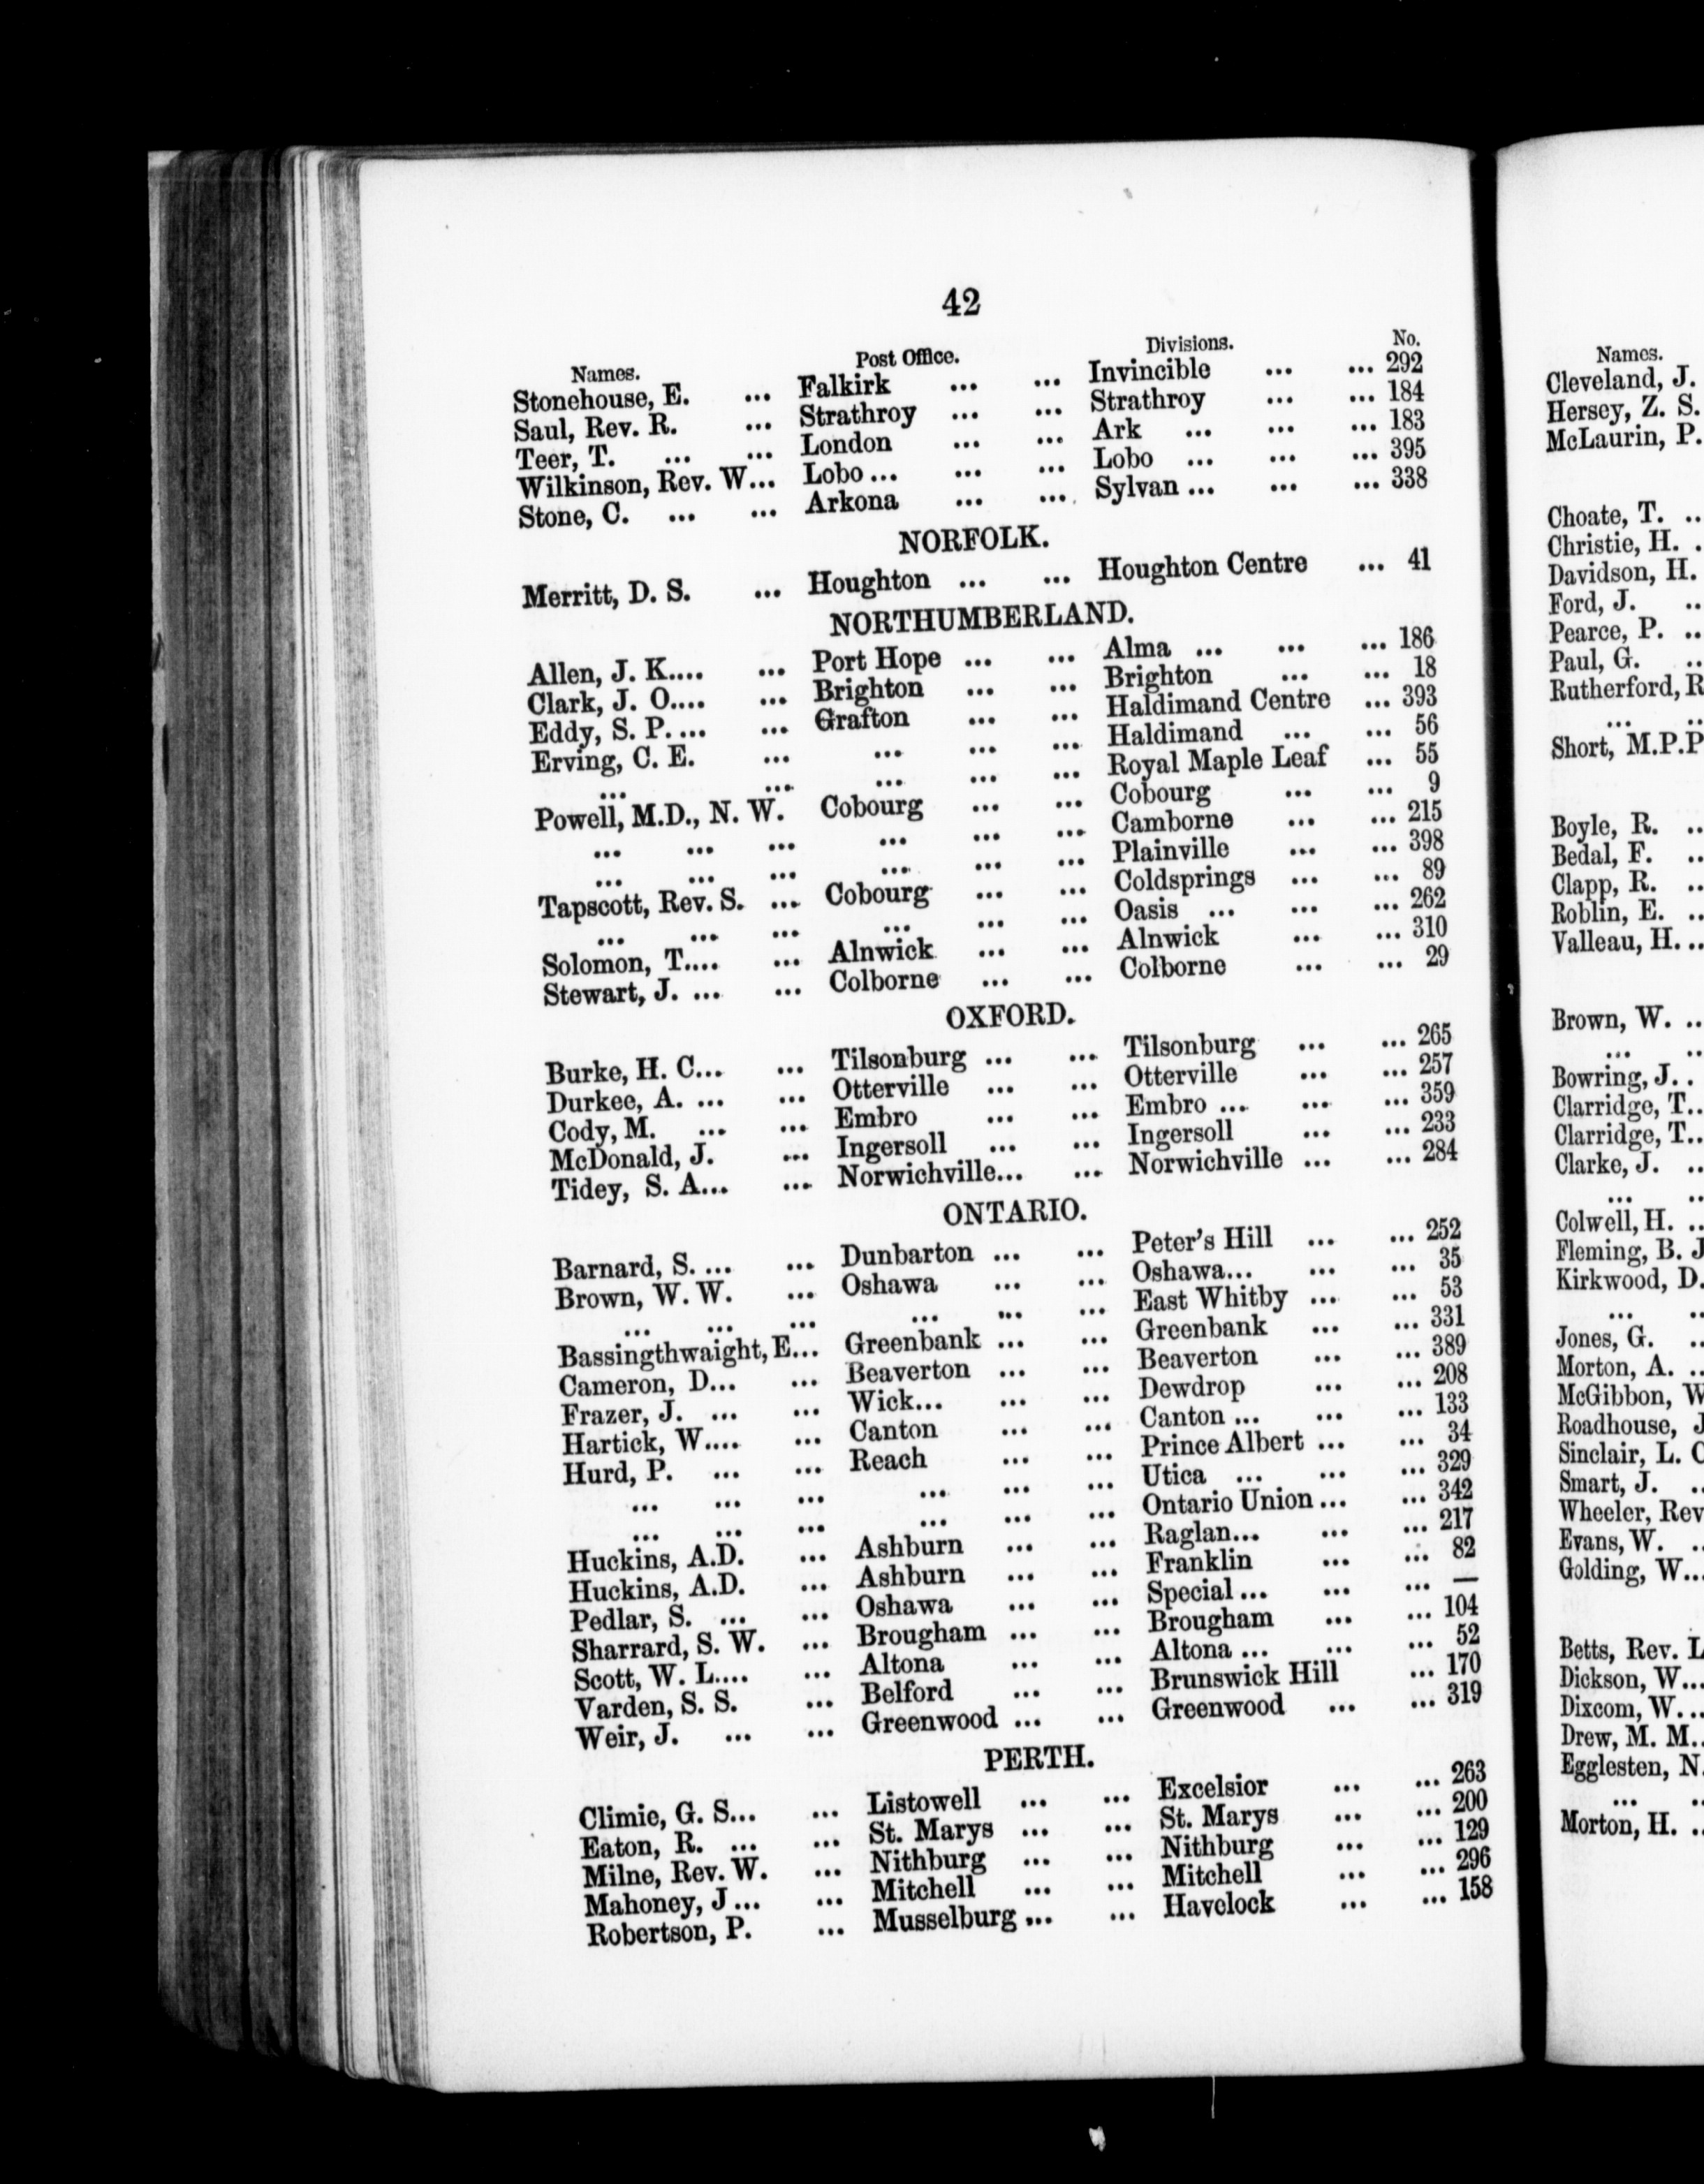 42
Names. Post Office. Divisions. No.
Stonehouse, E. ... Falkirk ... ... Invincible ... ... 292
Saul, Rev. R. ... Strathroy ... ... Strathroy ... ... 184
Teer, T. ... ... London ... ... Ark ... ... ... 183
Wilkinson, Rev. W... Lobo ... ... ... Lobo ... ... ... 395
Stone, C. ... ... Arkona ... ... Sylvan ... ... ... 338
NORFOLK.
Merritt, D. S. ... Houghton ... ... Houghton Centre ... 41
NORTHUMBERLAND.
Allen, J. K.... ... Port Hope ... ... Alma ... ... ... 186
Clark, J. O.... ... Brighton ... ... Brighton ... ... 18
Eddy, S. P. ... ... Grafton ... ... Haldimand Centre ... 393
Erving, C. E. ... ... ... ... Haldimand ... ... 56
... ... ... ... ... Royal Maple Leaf ... 55
Powell, M.D., N. W. Cobourg ... ... Cobourg ... ... 9
... ... ... ... ... ... Camborne ... ... 215
... ... ... ... ... ... Plainville ... ... 398
Tapscott, Rev. S. ... Cobourg ... ... Coldsprings ... ... 89
... ... ... ... ... ... Oasis ... ... ... 262
Solomon, T.... ... Alnwick ... ... Alnwick ... ... 310
Stewart, J. ... ... Colborne ... ... Colborne ... ... 29
OXFORD.
Burke, H. C... ... Tilsonburg ... ... Tilsonburg ... ... 265
Durkee, A. ... ... Otterville ... ... Otterville ... ... 257
Cody, M. ... ... Embro ... ... Embro ... ... ... 359
McDonald, J. ... Ingersoll ... ... Ingersoll ... ... 233
Tidey, S. A... ... Norwichville... ... Norwichville ... ... 284
ONTARIO.
Barnard, S. ... ... Dunbarton ... ... Peter's Hill ... ... 252
Brown, W. W. ... Oshawa ... ... Oshawa... ... ... 35
... ... ... ... ... ... East Whitby ... ... 53
Bassingthwaight, E... Greenbank ... ... Greenbank ... ... 331
Cameron, D... ... Beaverton ... ... Beaverton ... ... 389
Frazer, J. ... ... Wick... ... ... Dewdrop ... ... 208
Hartick, W.... ... Canton ... ... Canton ... ... ... 133
Hurd, P. ... ... Reach ... ... Prince Albert ... ... 34
... ... ... ... ... ... Utica ... ... ... 329
... ... ... ... ... ... Ontario Union ... ... 342
Huckins, A.D. ... Ashburn ... ... Raglan... ... ... 217
Huckins, A.D. ... Ashburn ... ... Franklin ... ... 82
Pedlar, S. ... ... Oshawa ... ... Special ... ... ... —
Sharrard, S. W. ... Brougham ... ... Brougham ... ... 104
Scott, W. L.... ... Altona ... ... Altona ... ... ... 52
Varden, S. S. ... Belford ... ... Brunswick Hill ... 170
Weir, J. ... ... Greenwood ... ... Greenwood ... ... 319
PERTH.
Climie, G. S... ... Listowell ... ... Excelsior ... ... 263
Eaton, R. ... ... St. Marys ... ... St. Marys ... ... 200
Milne, Rev. W. ... Nithburg ... ... Nithburg ... ... 129
Mahoney, J ... ... Mitchell ... ... Mitchell ... ... 296
Robertson, P. ... Musselburg ... ... Havelock ... ... 158
Names.
Cleveland, J.
Hersey, Z. S.
McLaurin, P.
Choate, T. ..
Christie, H. .
Davidson, H.
Ford, J. ..
Pearce, P. ..
Paul, G. ..
Rutherford, R
... ..
Short, M.P.P
Boyle, R. ..
Bedal, F. ..
Clapp, R. ..
Roblin, E. ..
Valleau, H. ..
Brown, W. ..
... ..
Bowring, J. .
Clarridge, T..
Clarridge, T..
Clarke, J. ..
... ..
Colwell, H. ..
Fleming, B. J
Kirkwood, D.
... ..
Jones, G. ..
Morton, A. ..
McGibbon, W
Roadhouse, J
Sinclair, L. C
Smart, J. ..
Wheeler, Rev
Evans, W. ..
Golding, W...
Betts, Rev. L
Dickson, W...
Dixcom, W...
Drew, M. M..
Egglesten, N.
... ..
Morton, H. ..